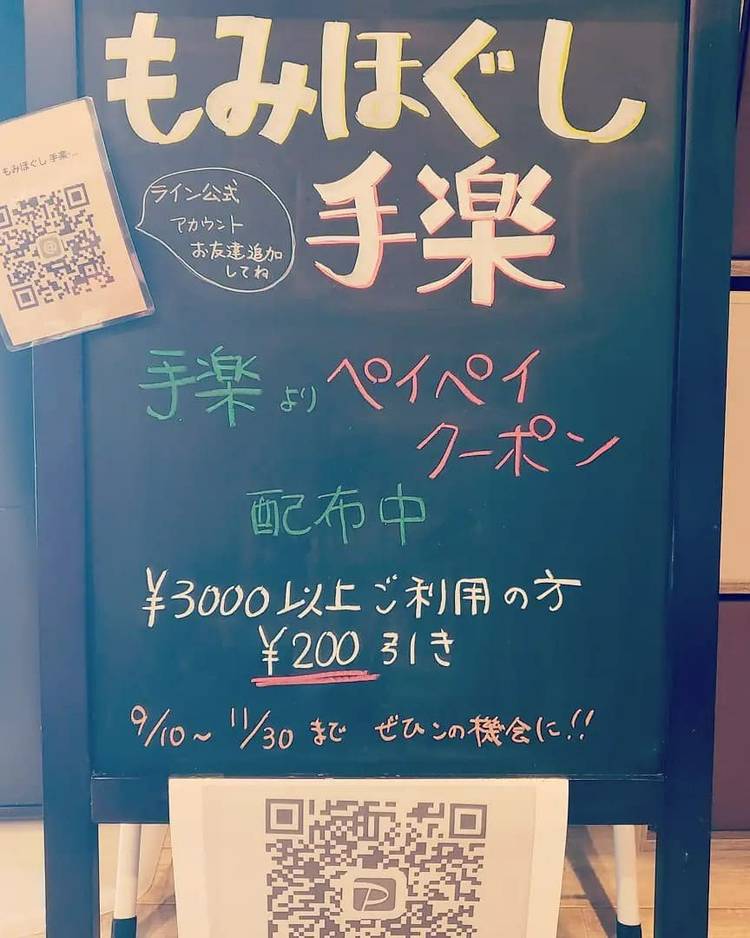 もみほぐし
手楽
もみほぐし 手楽-...
ライン公式
アカウント
お友達追加
してね
手楽よりペイペイ
クーポン
配布中
¥3000以上ご利用の方
¥200引き
9/10~11/30まで ぜひこの機会に!!